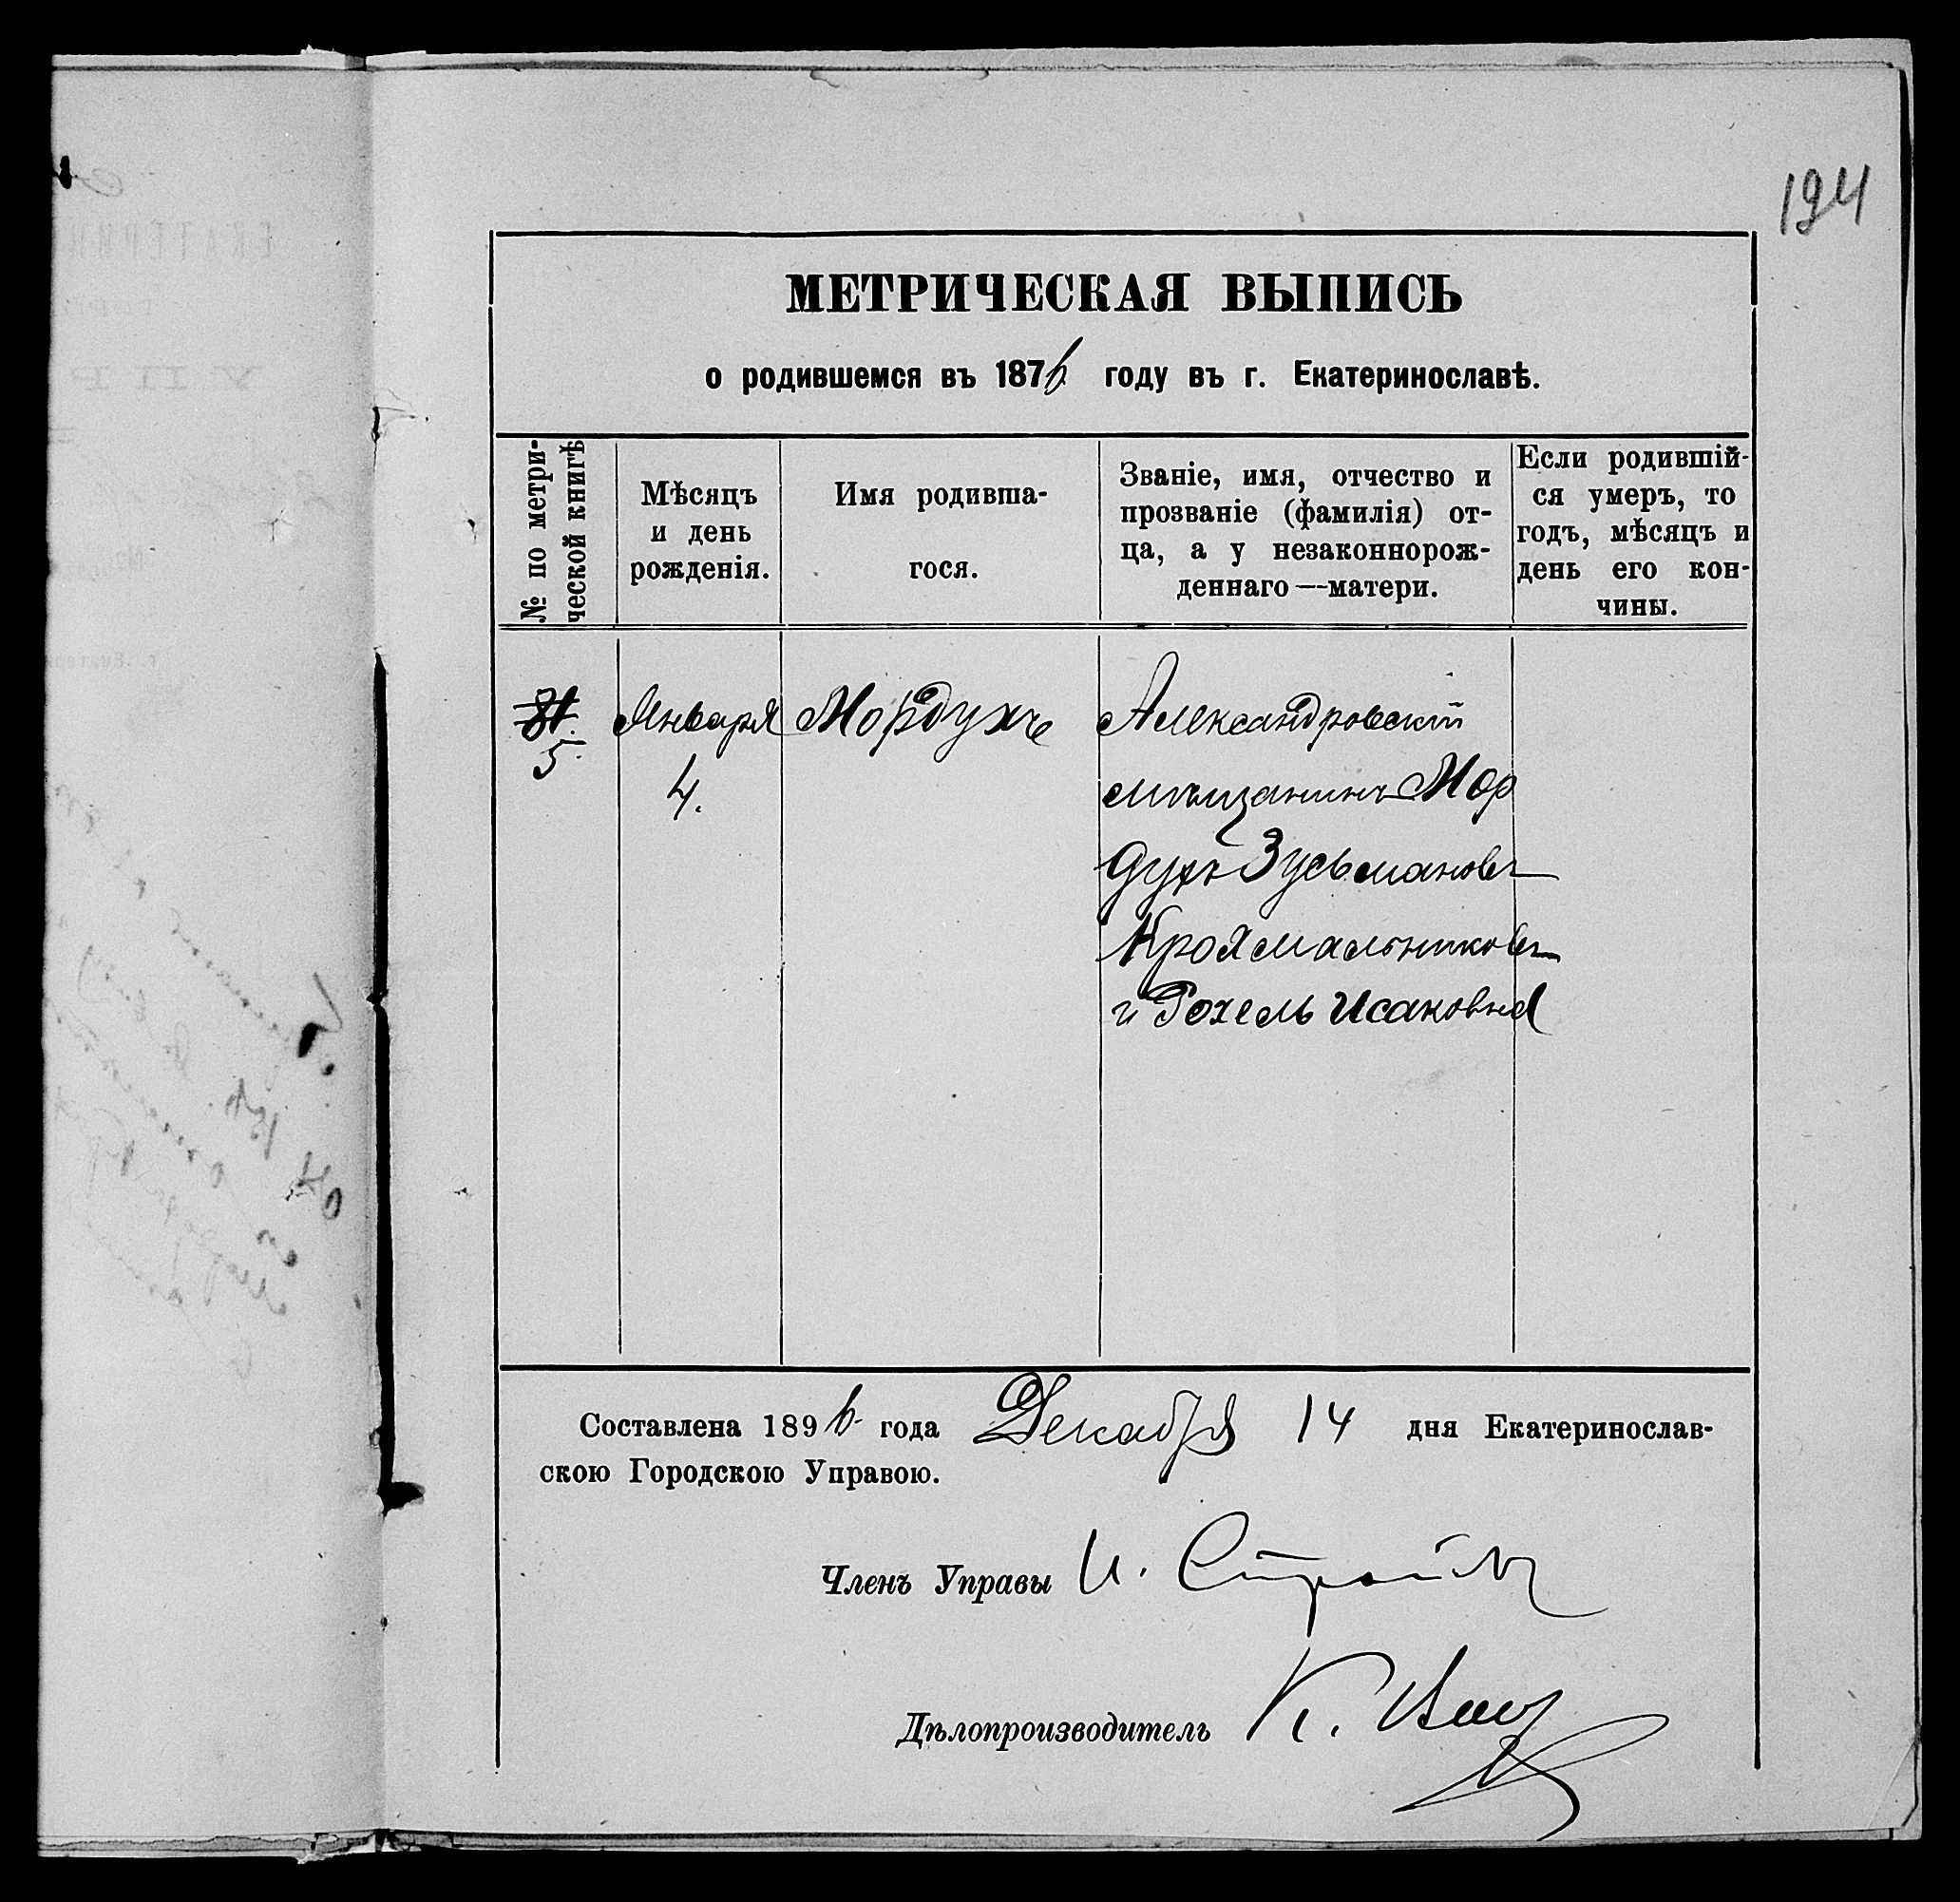 194
МЕТРИЧЕСКАЯ ВЫПИСЬ
о родившемся въ 1876 году въ г. Екатеринославѣ.
№ по метри-
ческой книгѣ
Мѣсяцъ
и день
рожденія.
Имя родивша-
гося.
Званіе, имя, отчество и
прозваніе (фамилія) от-
ца, а у незаконнорож-
деннаго—матери.
Если родившій-
ся умеръ, то
годъ, мѣсяцъ и
день его кон-
чины.
5
Января
4.
Мордухъ
Александровскій
мѣщанинъ Мор
духъ Зусьмановъ
Кроямальниковъ
и Рохель Исаковна
Составлена 1896 года Декабря 14 дня Екатеринослав-
скою Городскою Управою.
Членъ Управы И.
Дѣлопроизводитель К.